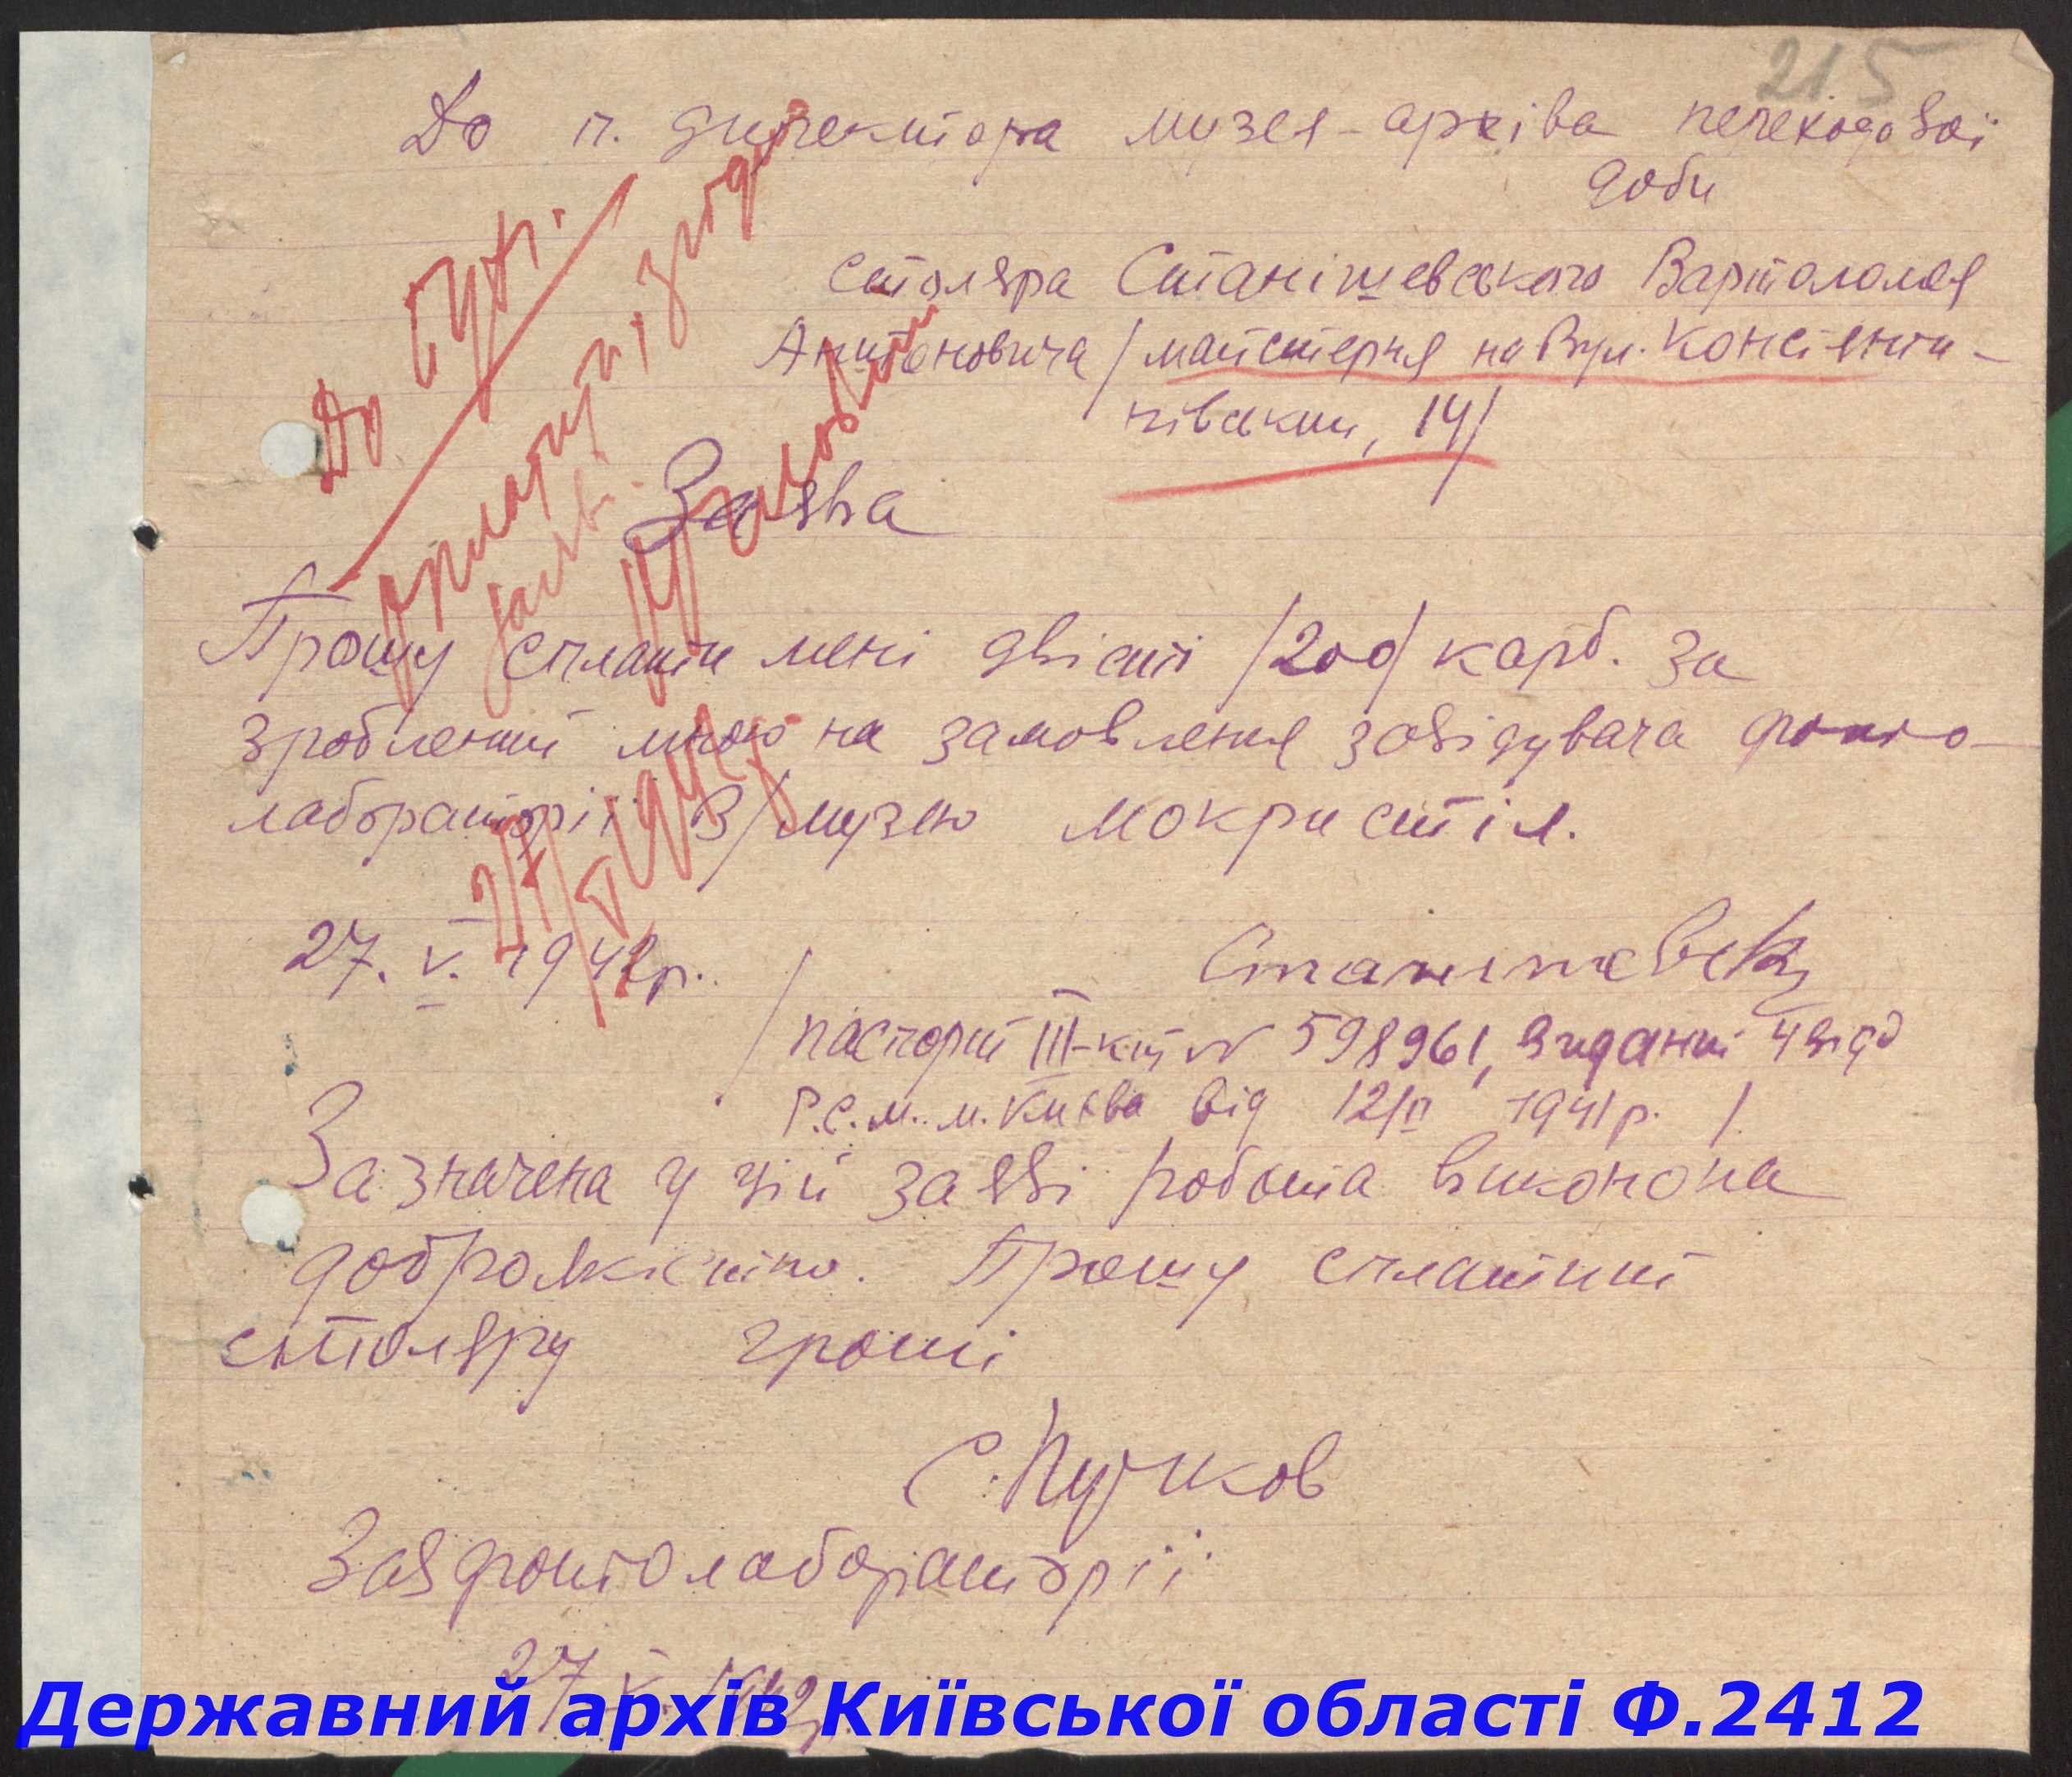 21.5
До п. директора музея-архіва переходової
доби
столяра Станішевського Вартоломея
Антоновича /майстерня на вул. Констянти-
нівський, 14/
До бух.
Прилюдн, згідно
Заява
Прошу сплати мені двісті /200/ карб. за
зроблений мною на замовлення завідувача фото-
лабораторії В/музею мокри стіл.
27. V. 1942р.
27/V 1942
Станишевськ
/паспорт III-кш № 598961, виданий 4 відд
Р.С.М. м. Києва від 12/II 1941 р. /
Зазначена у цій заяві робота виконона
доброякістно. Прошу сплатит
столяру гроші
С. Пучков
Зав фотолабораторії
27 V. 1942
Державний архів Київської області Ф.2412